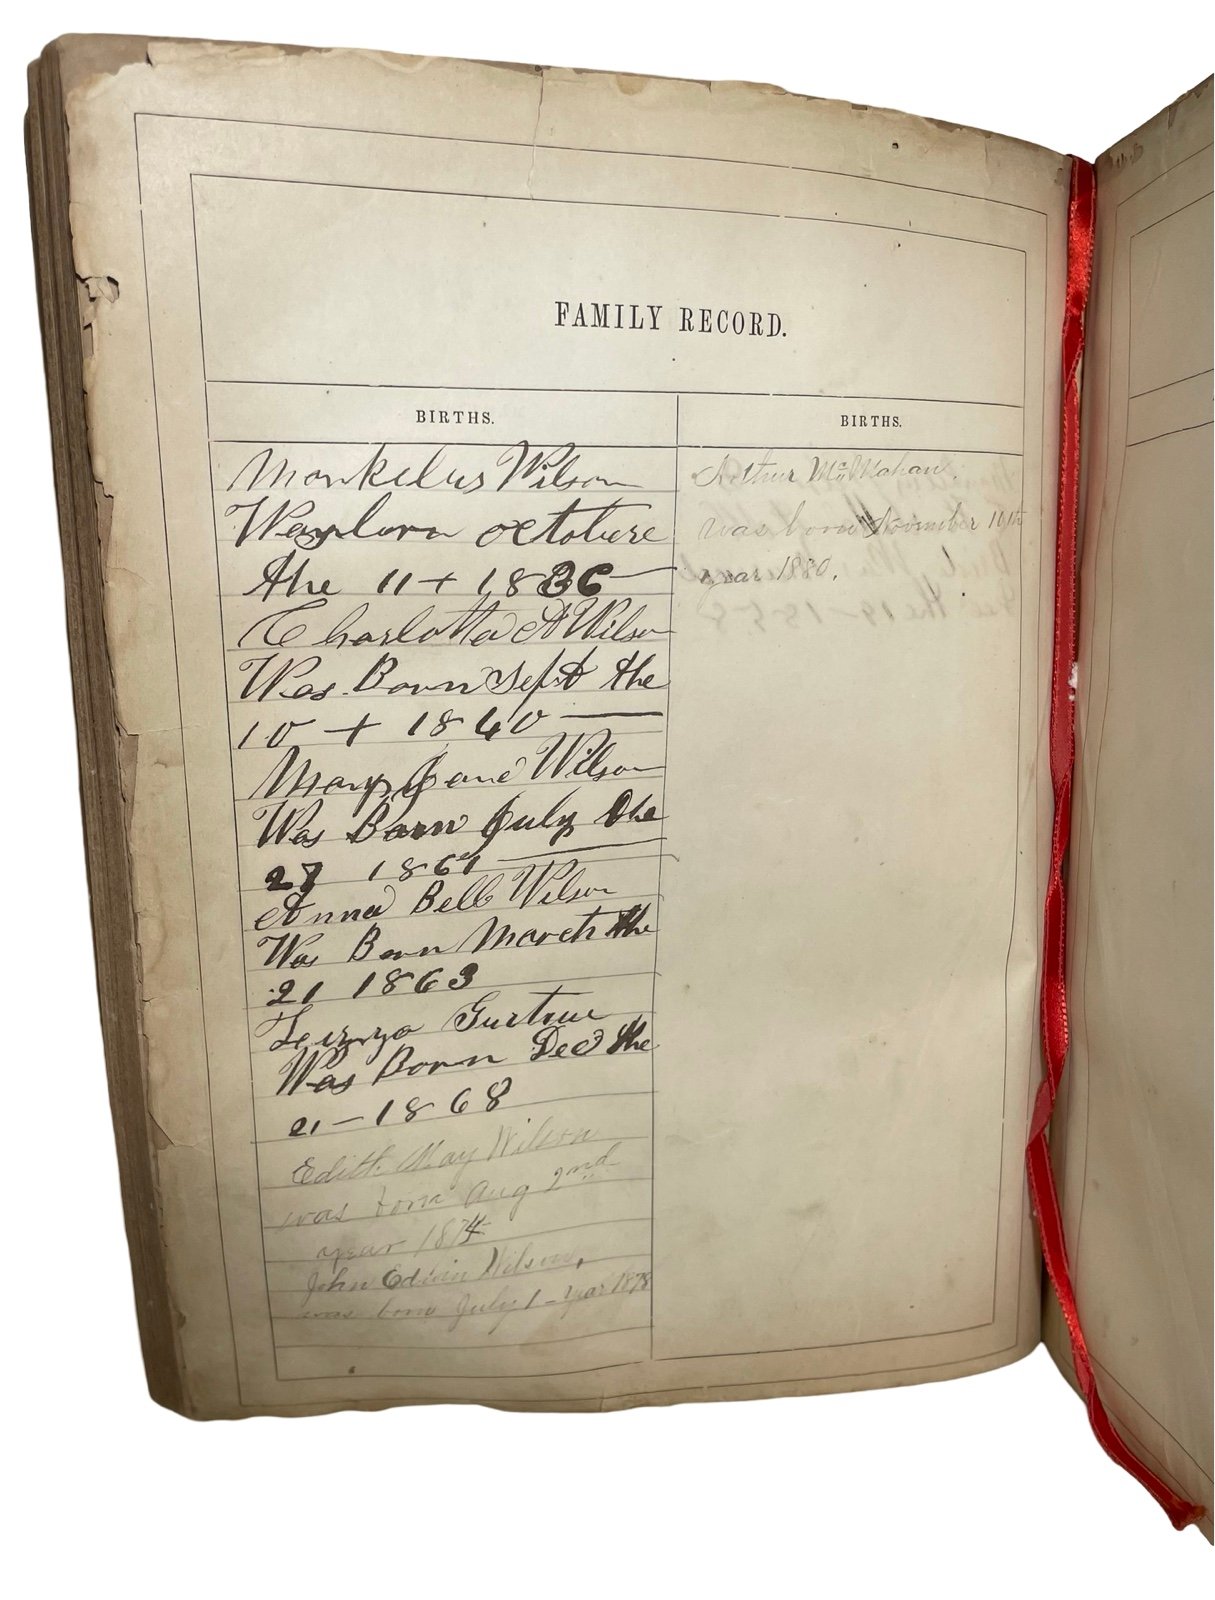 FAMILY RECORD.
BIRTHS.
Monkelus Wilson
Was born octobere
the 11 + 1836
Charlotta A Wilson
Was Born Sept the
10 + 1840
Mary Jane Wilson
Was Born July the
27 1861
Anna Bell Wilson
Was Born March the
21 1863
Gurtrue
Was Born Dec the
21 - 1868
Edith May Wilson
was born Aug 2nd
year 1874
John Edwin Wilson,
was born July 1 - year 1878
BIRTHS.
Arthur McMahan
was born November 10th
year 1880.